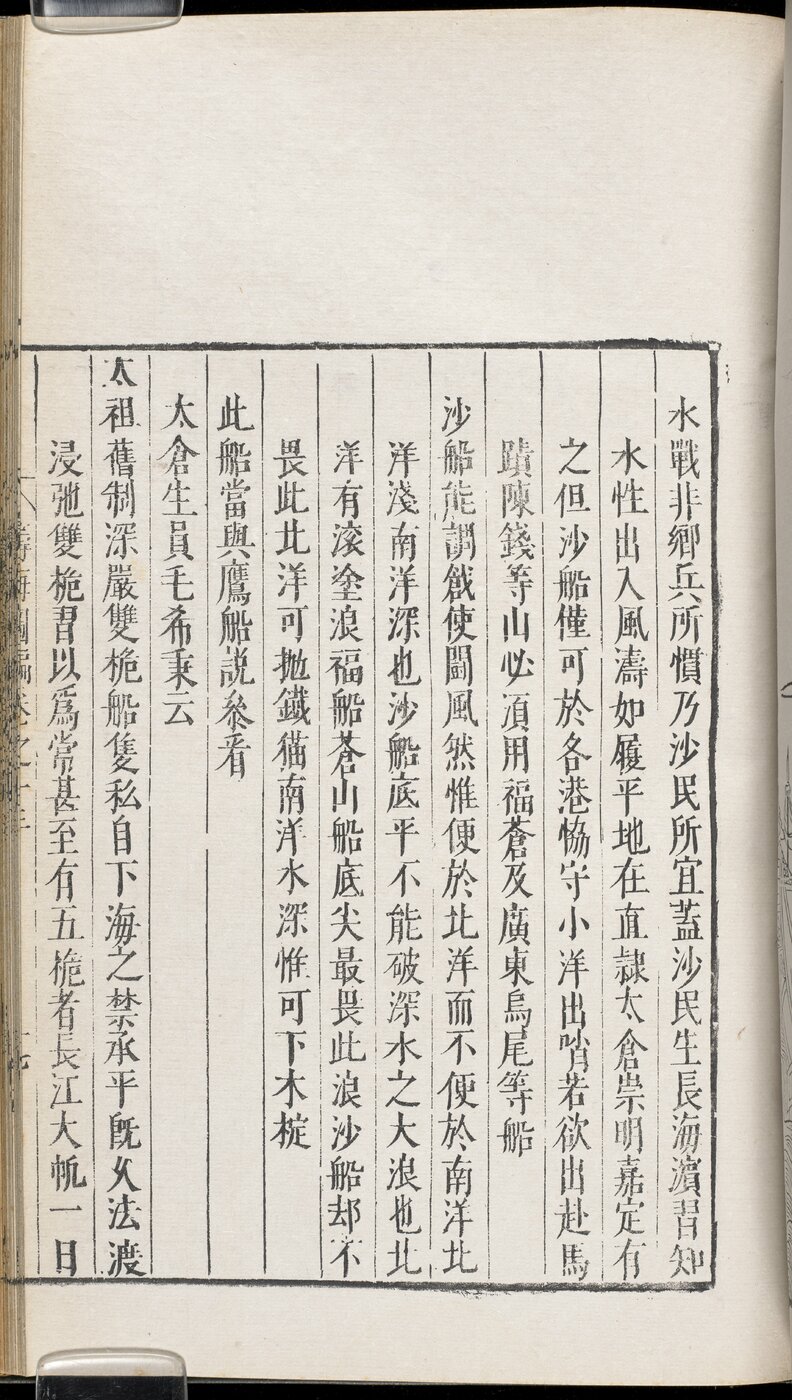 水戰非鄉兵所慣乃沙民所宜蓋沙民生長海濵習知
水性出入風濤如履平地在直𨽻太倉崇明嘉定有
之但沙船僅可於各港恊守小洋出哨若欲出赴馬
蹟陳錢等山必湏用福蒼及廣東烏尾等船
沙船能調戧使鬪風然惟便於北洋而不便於南洋北
洋淺南洋深也沙船底平不能破深水之大浪也北
洋有滚塗浪福船蒼山船底尖最畏此浪沙船却不
畏此北洋可抛鐡猫南洋水深惟可下木椗
此船當與鷹船說叅看
太倉生員毛希秉云
太祖舊制深嚴雙桅船隻私自下海之禁承平旣久法漸
浸弛雙桅習以爲常甚至有五桅者長江大帆一日
籌海圖編卷之十三